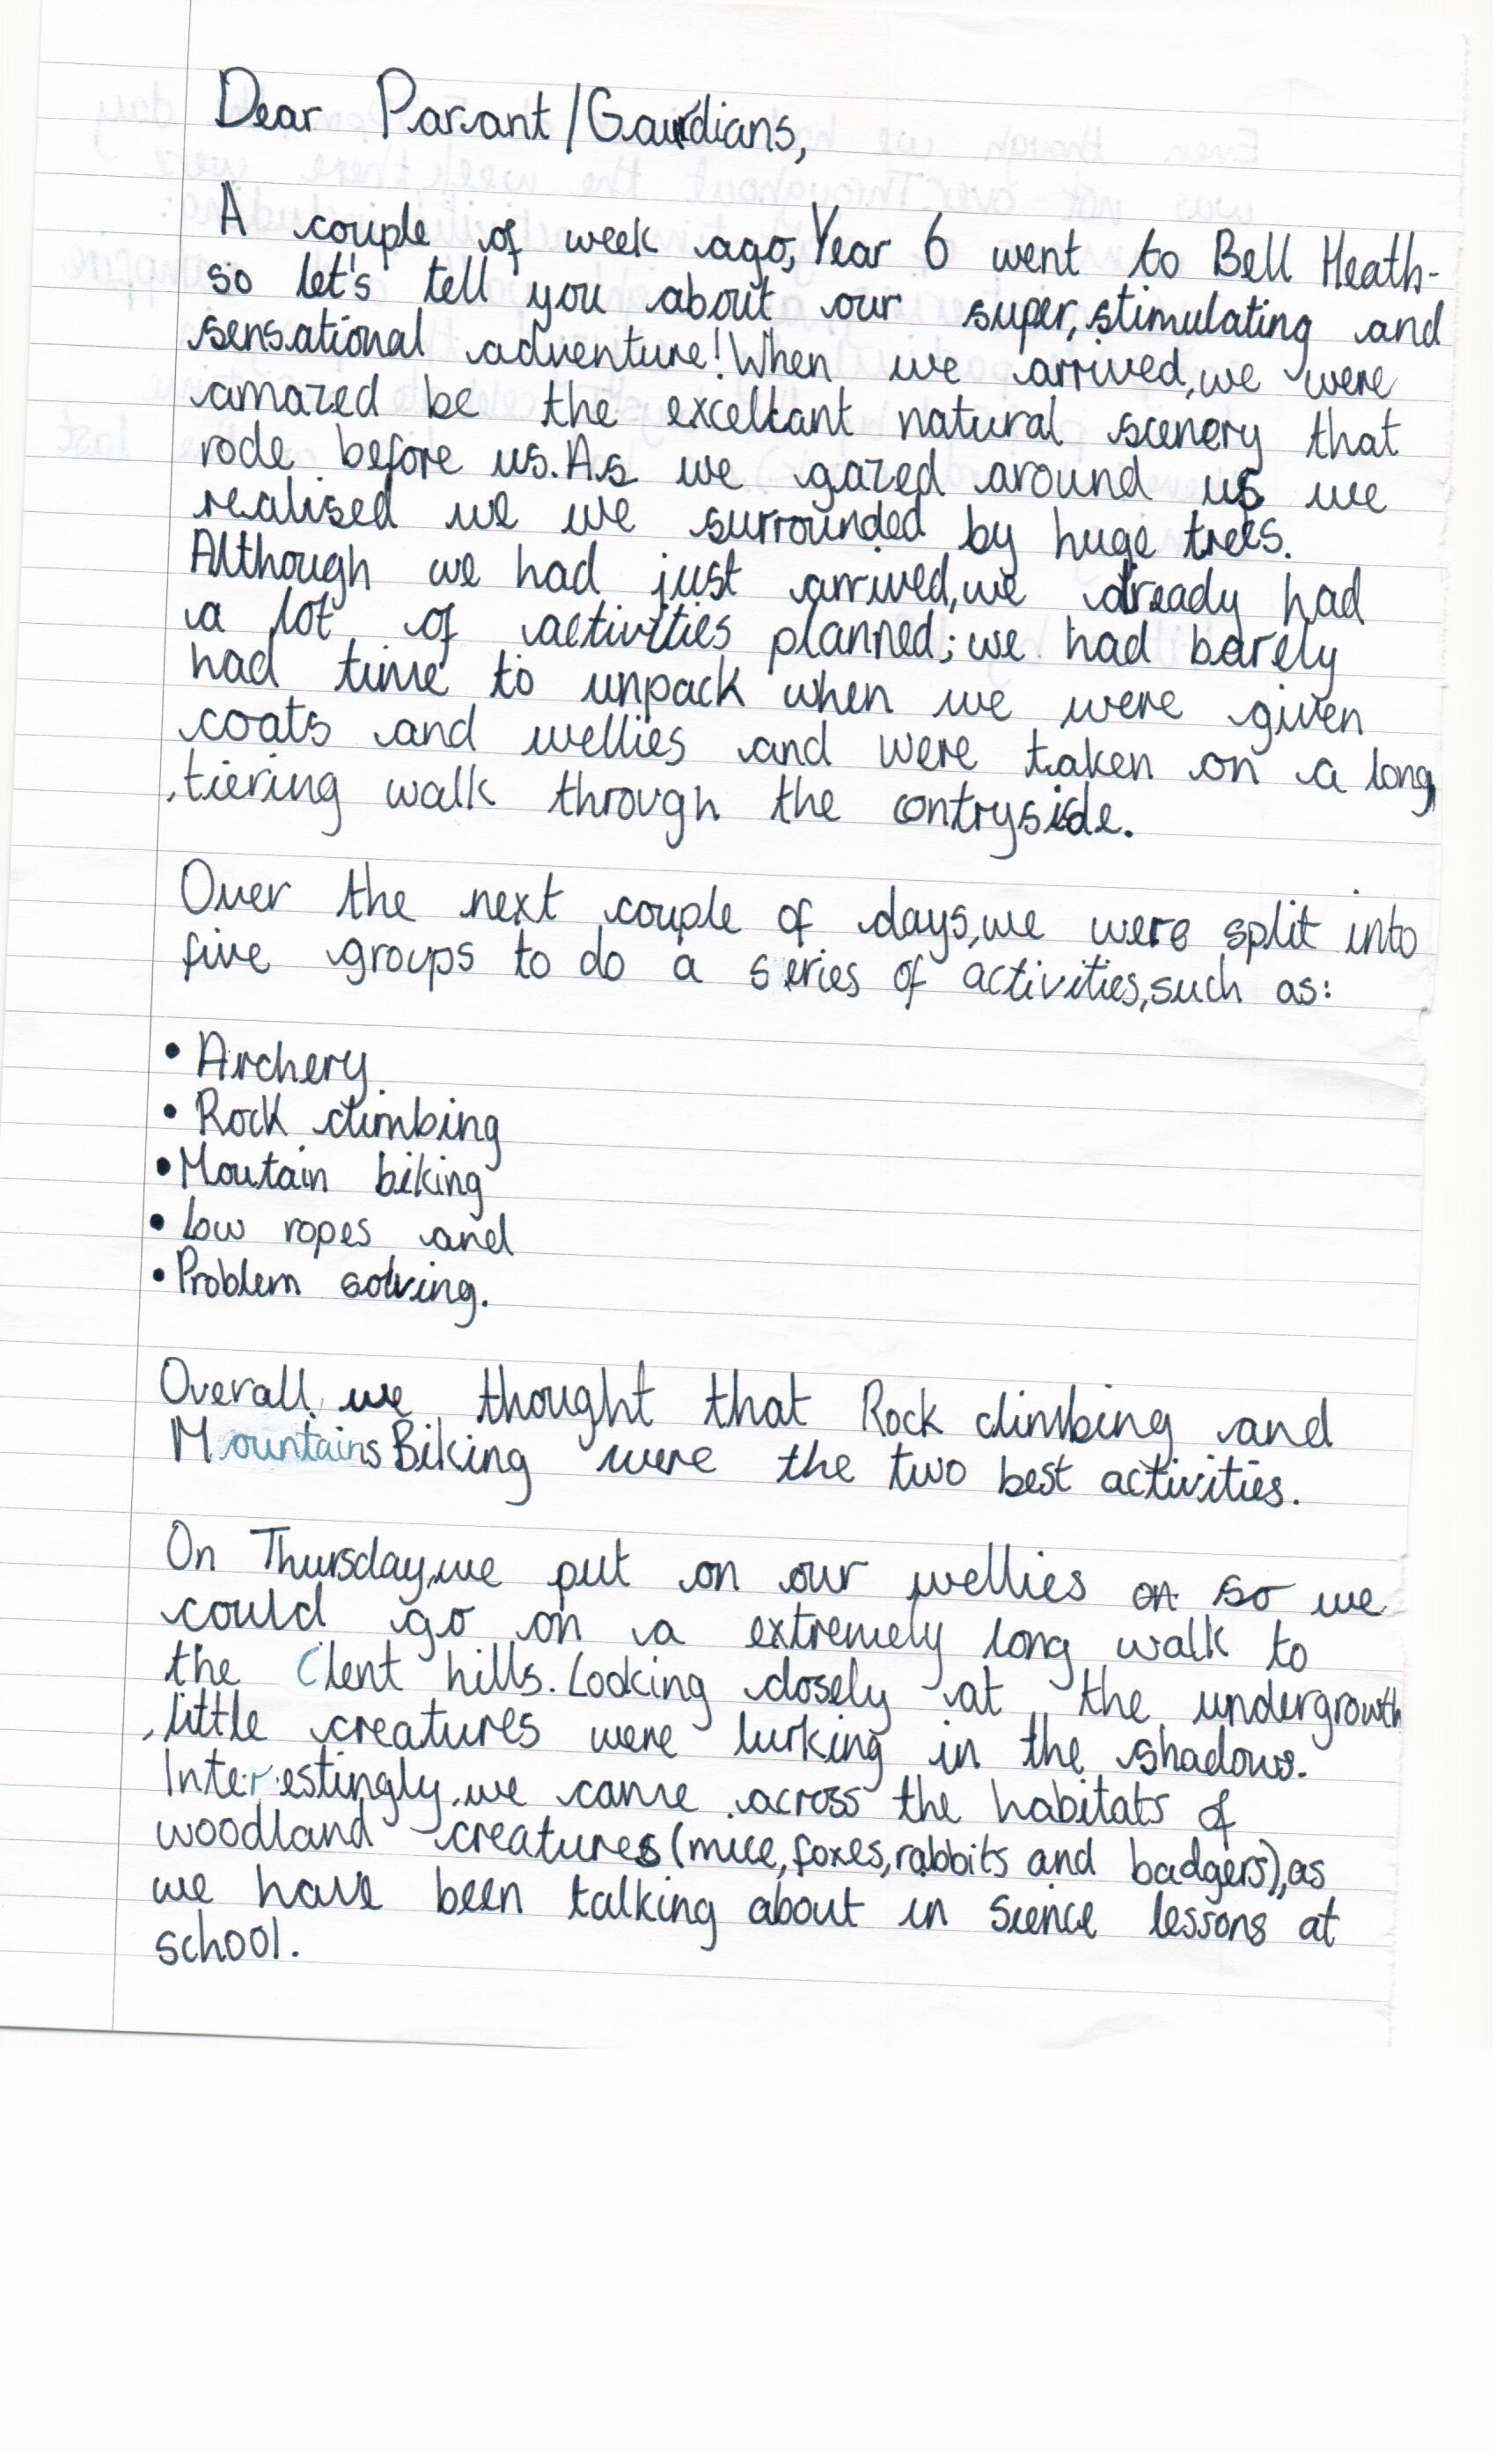 Dear Parant/Gaurdians,
A couple of week ago, Year 6 went to Bell Heath-
so let's tell you about our super, stimulating and
sensational adventure! When we arrived, we were
amazed be the excellant natural scenery that
rode before us. As we gazed around us we
realised we we surrounded by huge trees.
Although we had just arrived, we already had
a lot of activities planned; we had barely
had time to unpack when we were given
coats and wellies and were taken on a long
, tiering walk through the contryside.
Over the next couple of days, we were split into
five groups to do a series of activities, such as:
• Archery
• Rock climbing
• Moutain biking
• Low ropes and
• Problem solving.
Overall, we thought that Rock climbing and
Mountains Biking were the two best activities.
On Thursday, we put on our wellies on so we
could go on a extremely long walk to
the Clent hills. Looking closely at the undergrowth
, little creatures were lurking in the shadows.
Interestingly, we came across the habitats of
woodland creatures (mice, foxes, rabbits and badgers), as
we have been talking about in Sience lessons at
school.